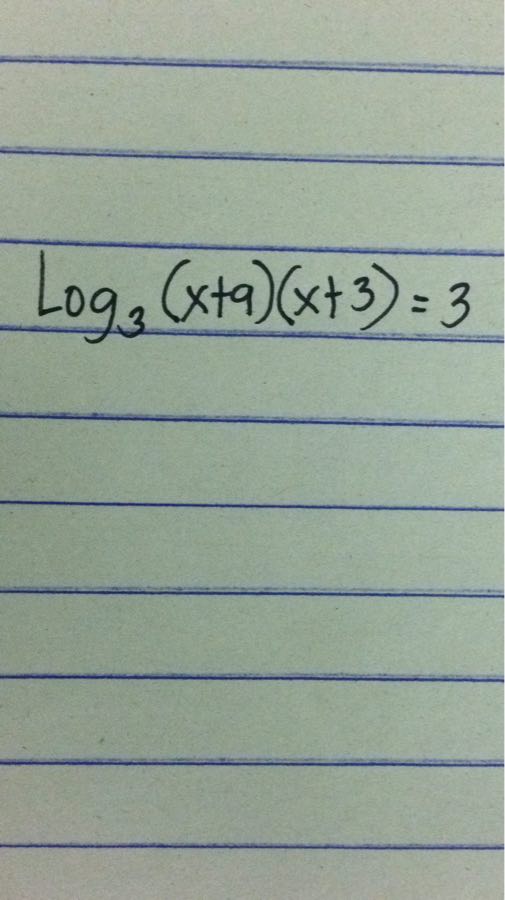 Log₃ (x+9)(x+3) = 3